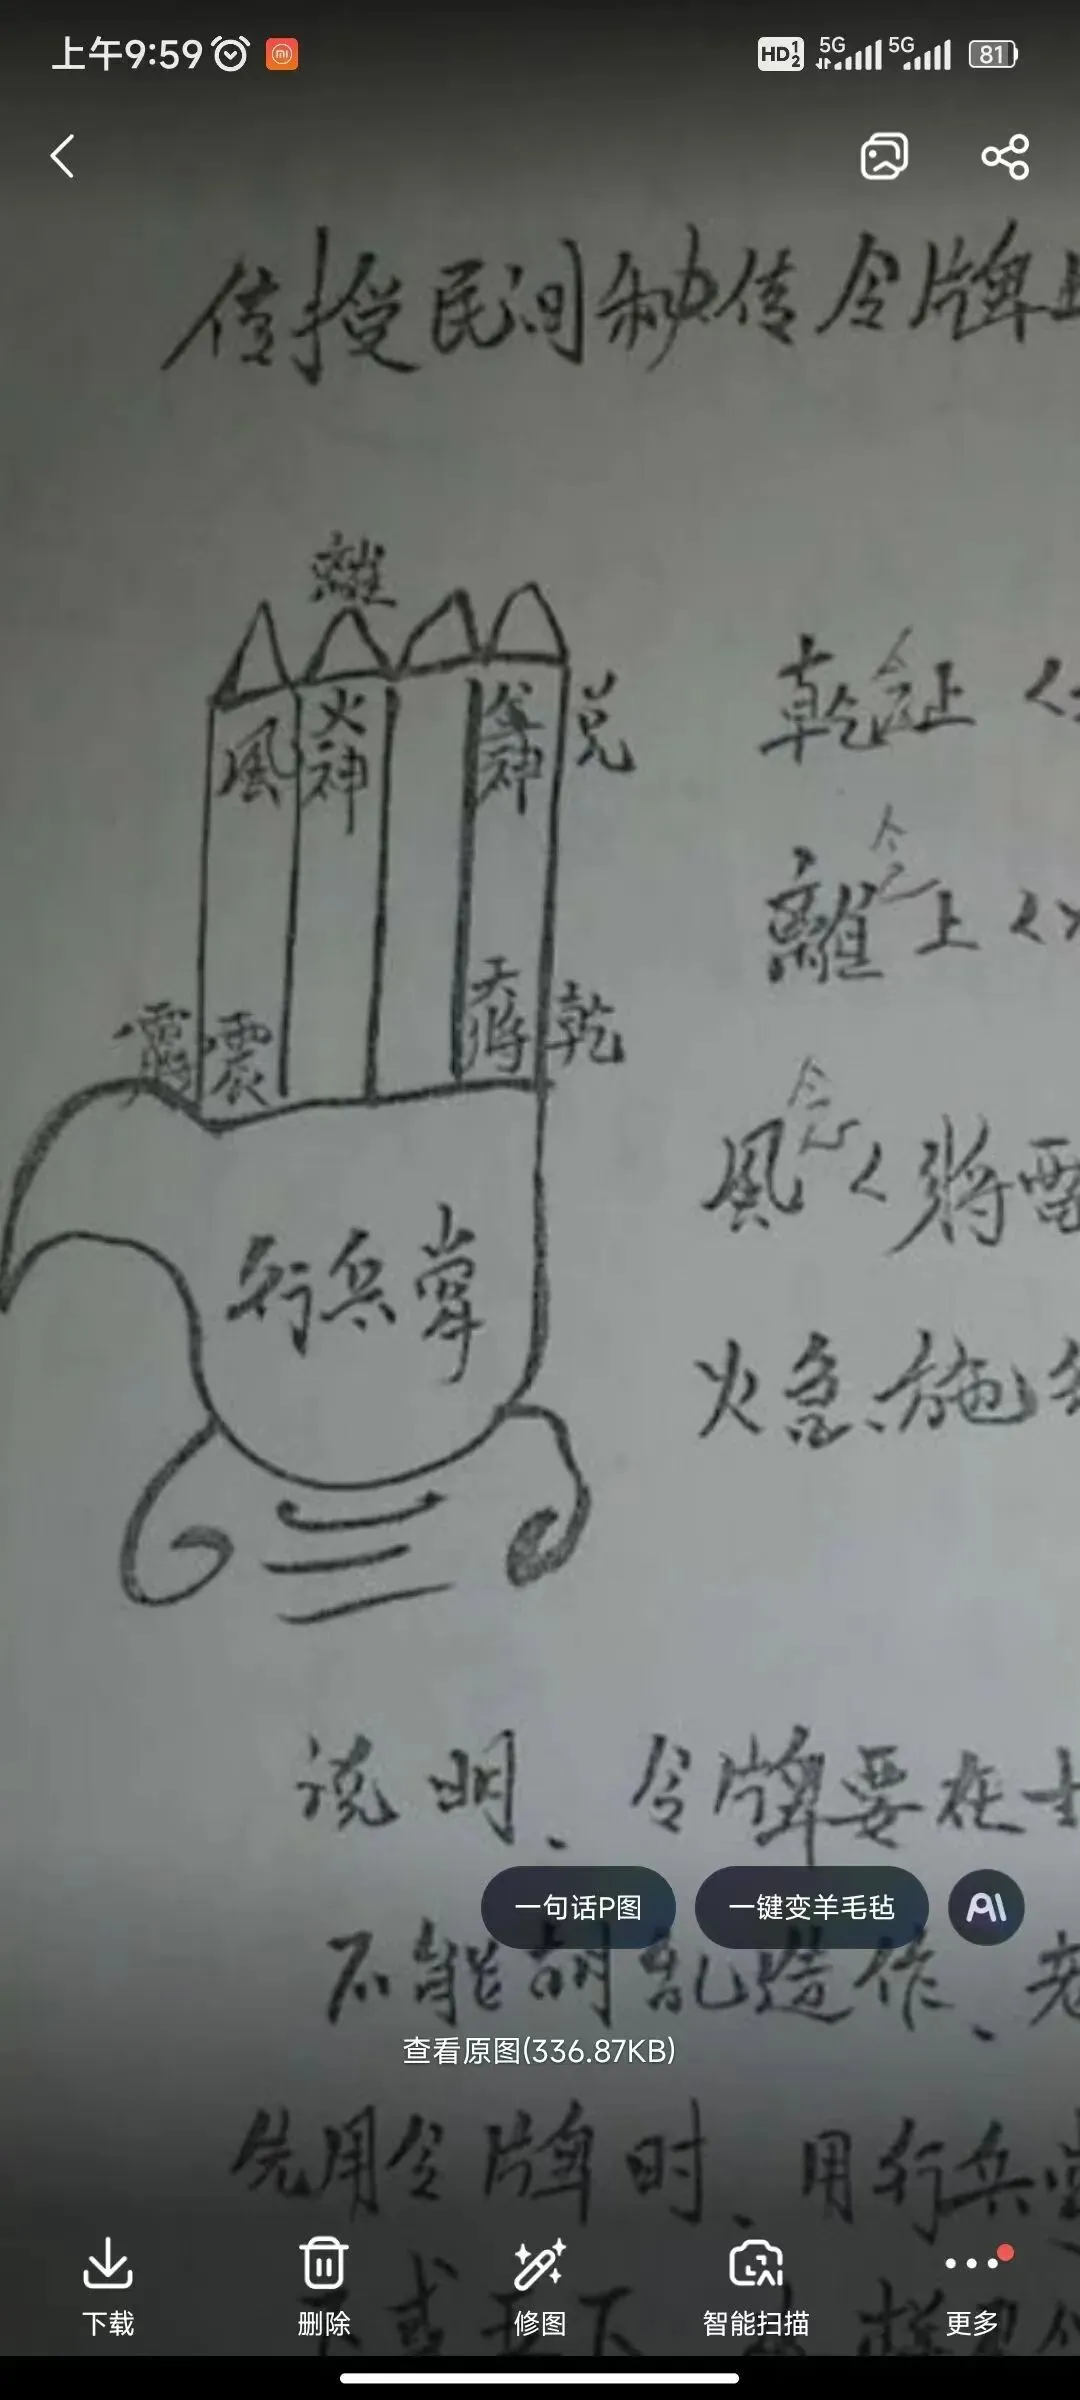 上午9:59
HD 1 2 5G 5G 81
传授民间秘传令牌
離
風 火神 兑
乾 念 上
離 念 上
震 天将 乾
風 念
火急施
行兵掌
说明、令牌要在
一句话P图 一键变羊毛毡 AI
不能胡乱造作、
查看原图(336.87KB)
先用令牌时、用行兵掌
下载 删除 修图 智能扫描 更多